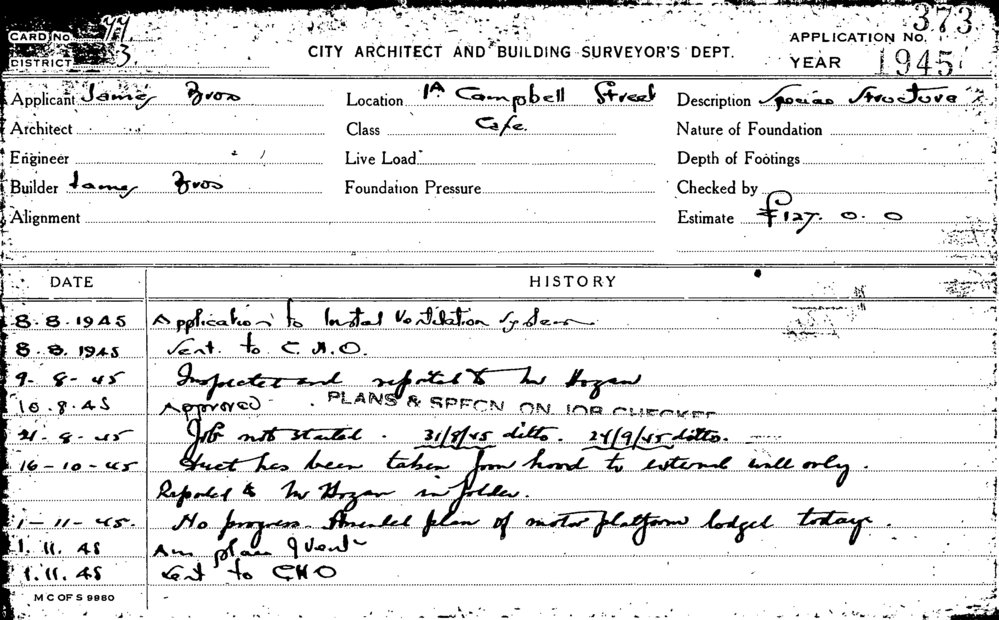 CARD NO. 44
DISTRICT 3.
CITY ARCHITECT AND BUILDING SURVEYOR'S DEPT.
APPLICATION NO. 373
YEAR 1945
Applicant James Bros Location 1A Campbell Street Description Special Structure
Architect Class Cafe. Nature of Foundation
Engineer Live Load Depth of Footings
Builder James Bros Foundation Pressure Checked by
Alignment Estimate £127. 0. 0
DATE HISTORY
8.8.1945 Application to Instal Ventilation System
8.8.1945 Sent to C.H.O.
9-8-45 Inspected and reported to Mr Hogan
10.8.45 Approved. PLANS & SPECN ON JOB CHECKED
21-8-45 Job not started. 31/8/45 ditto. 24/9/45 ditto.
16-10-45 Duct has been taken from hood to external wall only.
Reported to Mr Hogan in folder.
1-11-45. No progress. Amended plan of motor platform lodged today.
1.11.45 Am plan Vent
1.11.45 Sent to CHO
M C OF S 9980